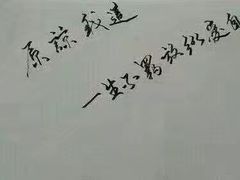 原谅我这
一生不羁放纵爱自